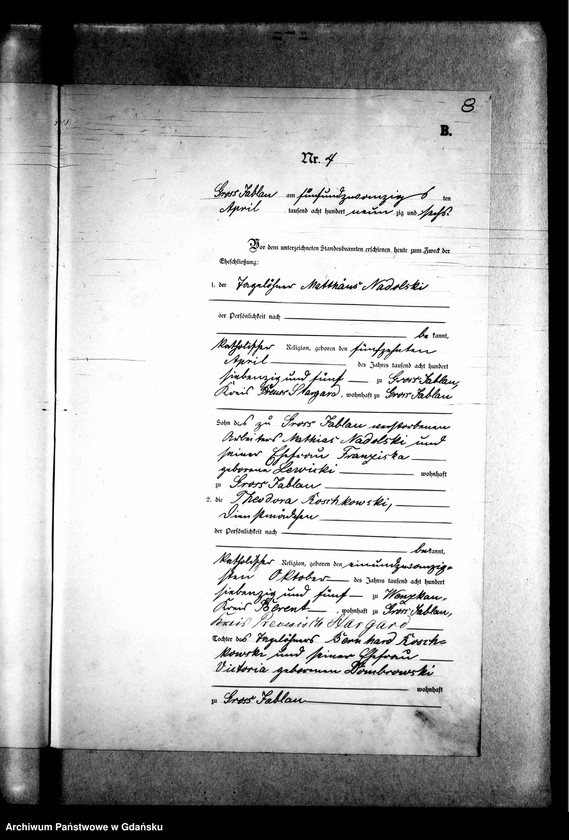 8
B.
Nr. 4
Gross Jablau am fünfundzwanzigsten
April tausend acht hundert neunzig und sechs.
Vor dem unterzeichneten Standesbeamten erschienen heute zum Zweck der
Eheschließung:
1. der Tagelöhner Matthäus Nadolski
der Persönlichkeit nach
be kannt,
katholischer Religion, geboren den fünfzehnten
April des Jahres tausend acht hundert
siebenzig und fünf zu Gross Jablau,
Kreis Preuss Stargard, wohnhaft zu Gross Jablau
Sohn des zu Gross Jablau verstorbenen
Arbeiters Mathias Nadolski und
seiner Ehefrau Franziska
geborene Lewicki wohnhaft
zu Gross Jablau
2. die Theodora Koschkowski,
Dienstmädchen
der Persönlichkeit nach
bekannt,
katholischer Religion, geboren den einundzwanzig-
sten Oktober des Jahres tausend acht hundert
siebenzig und fünf zu
Kreis Berent, wohnhaft zu Gross Jablau,
Kreis Preussisch Stargard
Tochter des Tagelöhners Bernhard Kosch-
kowski und seiner Ehefrau
Victoria geborenen Dombrowski
wohnhaft
zu Gross Jablau
Archiwum Państwowe w Gdańsku